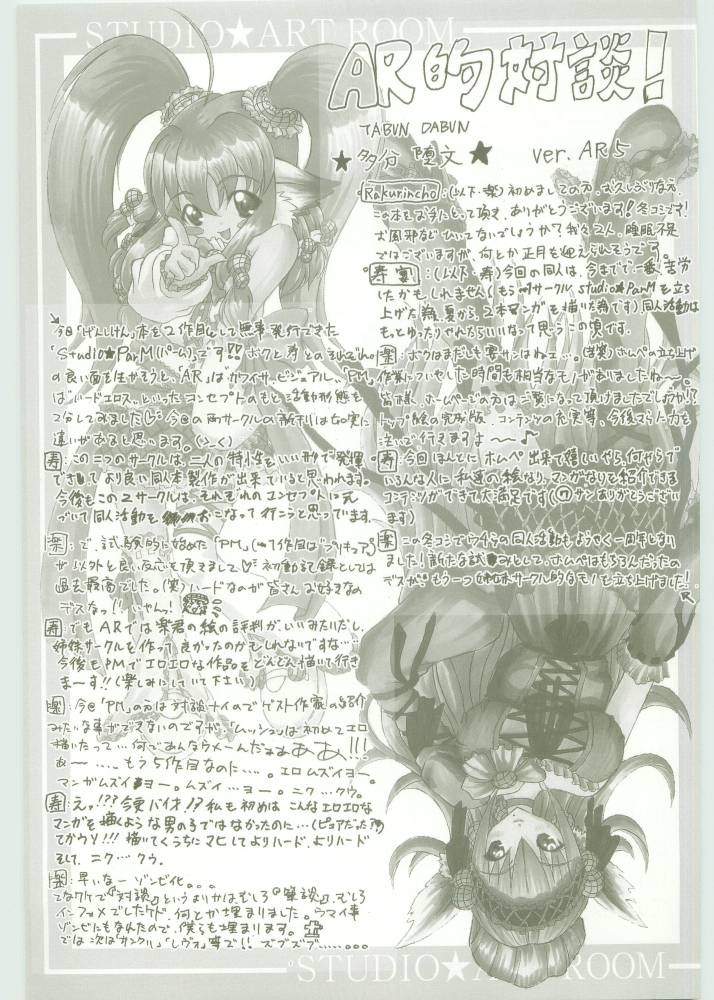 STUDIO★ART ROOM
AR的対談!
TABUN DABUN
★多分 堕文★ ver. AR5
Rakurincho:(以下・楽)初めましての方、お久しぶりな方、
この本をお手にとって頂き、ありがとうございます!冬コミです!
お風邪などひいてないでしょうか?我々2人、睡眠不足
ではございますが、何とか正月も迎えられそうです。
寿宴:(以下・寿)今回の同人は、今までで一番苦労
したかもしれません(もう一つサークル studio★ParMを立ち
上げた為、夏から、2本マンガも描いた為です)同人活動は
もっとゆったりやれたらいいなって思うこの頃です。
楽:ボクはまだしも寿サンはねェ…。(苦笑)ホムペの立ち上げ
作業についやした時間も相当なモノがありましたねーっ。
皆様、ホームページの方はご覧になって頂けましたでしょうか!?
トップ絵の完成版、コンテンツの充実等、今後もより力を
注いで行きますよ〜〜♪
寿:今回ほんとにホムペ出来て嬉しいやら、何やらで
いろんな人に私達の絵なり、マンガなりを紹介できる
コンテンツができて大満足です(@サンありがとうござい
ます)
楽:この冬コミでウチらの同人活動もようやく一周年となり
ました!新たな試みとして、ホムペはもちろんだったの
デスが、もう一つ姉妹サークル的なモノも立ち上げました!
今回「げんしけん」本を2作目として無事発行できた
「Studio★ParM(パーム)」です!!ボクと寿とのそれぞれ
の良い面を生かそうと、「AR」はカワイサ、ビジュアル、「PM」
は「ハードエロス」といったコンセプトのもと活動形態を
2分してみました♡今回の両サークルの新刊は如実に
違いがあると思います。
寿:この二つのサークルは、二人の特性をいい形で発揮
できてより良い同人本製作が出来ていると思われます。
今後もこの2サークルは、それぞれのコンセプトに元
づいて同人活動をおこなって行こうと思っています。
楽:で、試験的に始めた「PM」(1作目は「プリキュア」)
が以外と良い反応も頂きまして♡初動うると録としては
過去最高でした。(笑)ハードなのが皆さんお好きなの
デスなっ!!いやんっ!
寿:でもARでは楽君の絵の評判がいいみたいだし、
姉妹サークルを作って良かったのかもしれないですな…
今後もPMでエロエロな作品をどんどん描いて行き
まーす!!(楽しみにしていて下さい)
楽:今回「PM」の方は対談ナイのでゲスト作家の紹介
みたいな事ができないのですが、「ムッシュ」は初めてエロ
描いたって…何であんなウメーんだよぉあぁ!!!
あ〜……もう5作目なのに…。エロムズイヨー。
マンガムズイヨー。ムズイ…ヨー。ニク…クウ。
寿:えっ!??今更バイオ!?私も初めは こんなエロエロな
マンガを描くような男の子ではなかったのに…(ピュアだった?)
てかウソ!!!描いてくうちにマヒしてよりハード、よりハード
そして、ニク…クウ。
楽:早いなーゾンビ化。。。
てなワケで『対談』というよりかはむしろ『筆談』、むしろ
インフォメでしたケド、何とか埋まりました。ウマイ事
ゾンビにもなんたので、僕らも埋まります。
では次は「サンクル」「レヴォ」等で!!ズブズブ……。。。
STUDIO★ART ROOM